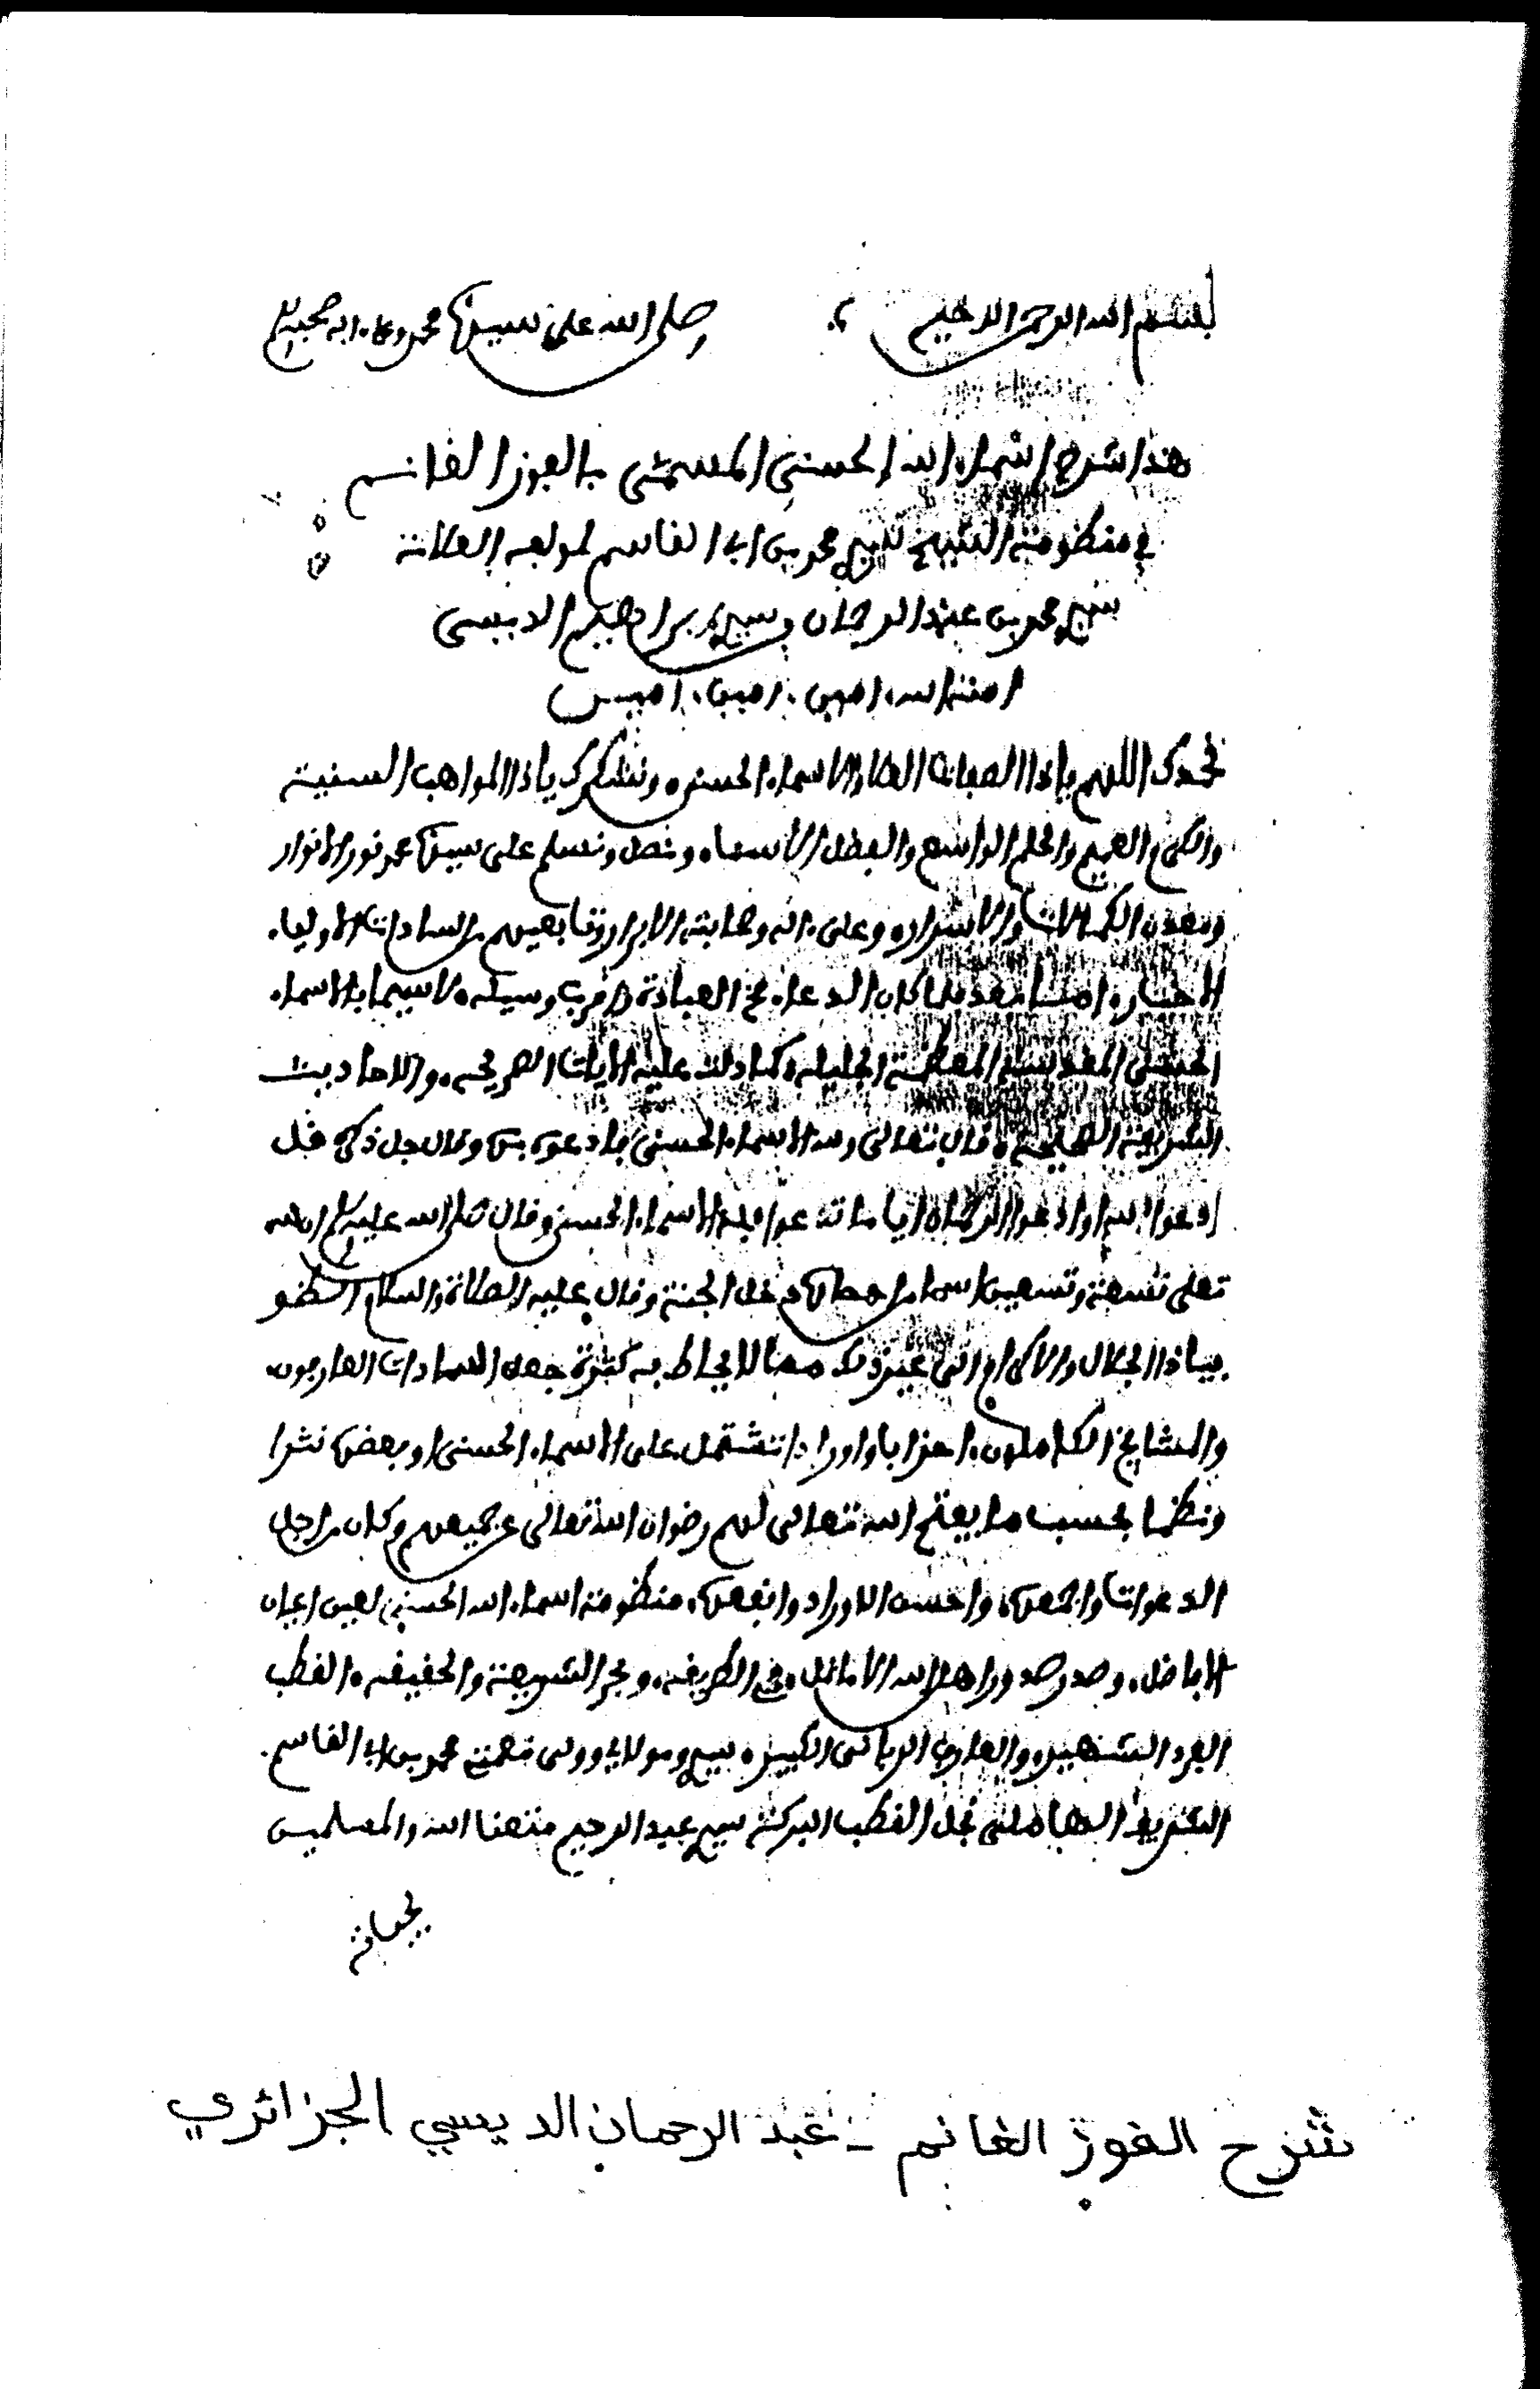 بسم الله الرحمن الرحيم وصلى الله على سيدنا محمد وءاله وصحبه
هذا شرح اسماء الله الحسنى المسمى بالفوز الغانم
في منظومة الشيخ سيدي محمد بن ابي القاسم لمؤلفه العلامة
سيدي محمد بن عبد الرحمان وسيدي ابراهيم الديسي
امنه الله، امين، امين، امين
نحمدك اللهم ياذا الصفات العلا والاسماء الحسنى ونشكرك ياذا المواهب السنية
والكرم العميم والحلم الواسع والفضل الاسماء ونصل ونسلم على سيدنا محمد نور الانوار
ومعدن الكمالات والاسرار وعلى ءاله وصحابته الابرار وتابعيهم من السادات الاولياء
الاخيار اما بعد فلما كان الدعاء مخ العبادة واقرب وسيلة لاسيما بالاسماء
الحسنى المقدسة المعظمة الجليلة كما دلت عليه الايات الصريحه والاحاديث
الشريفة الصحيحة قال تعالى ولله الاسماء الحسنى فادعوه بها وقال جل ذكره قل
ادعوا الله او ادعوا الرحمان ايا ما تدعوا فله الاسماء الحسنى وقال صلى الله عليه وسلم ان لله
تعلى تسعة وتسعين اسما من احصاها دخل الجنة وقال عليه الصلاة والسلام الظو
بياذا الجلال والاكرام الى غير ذلك مما لا يحاط به كثرة جعل السادات العارفون
والمشايخ الكاملون احزابا واورادا تشتمل على الاسماء الحسنى او بعضها نثرا
ونظما بحسب ما يفتح الله تعالى لهم رضوان الله تعالى عن جميعهم وكان من اجل
الدعوات واجمعها واحسن الاوراد وانفعها منظومة اسماء الله الحسنى لعين اعيان
الافاضل وصدر صدور اهل الله الاماثل فخر الطريقه وبحر الشريعة والحقيقه القطب
الفرد الشهير والعارف الرباني الكبير سيدي ومولاي وولي نعمتي محمد بن ابي القاسم
الشريف الهاملي نجل القطب البركة سيدي عبد الرحيم متعنا الله والمسلمين
بحياته
شرح الفوز الغانم - عبد الرحمان الديسي الجزائري